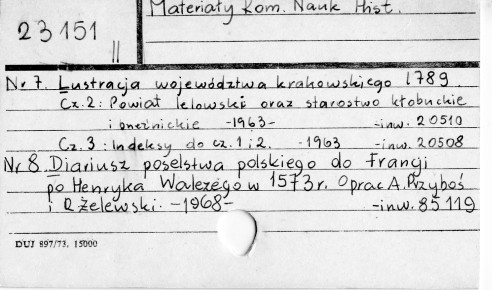 Materiały Kom. Nauk Hist.
23151
II
Nr 7. Lustracja województwa krakowskiego 1789
Cz. 2: Powiat lelowski oraz starostwo kłobuckie
i -1963- -inw. 20510
Cz. 3: Indeksy do cz. 1 i 2. -1963 -inw. 20508
Nr 8. Diariusz poselstwa polskiego do Francji
po Henryka Walezego w 1573 r. Oprac A. Przyboś
i R. Żelewski. -1968- -inw. 85119
DUJ 897/73. 15000